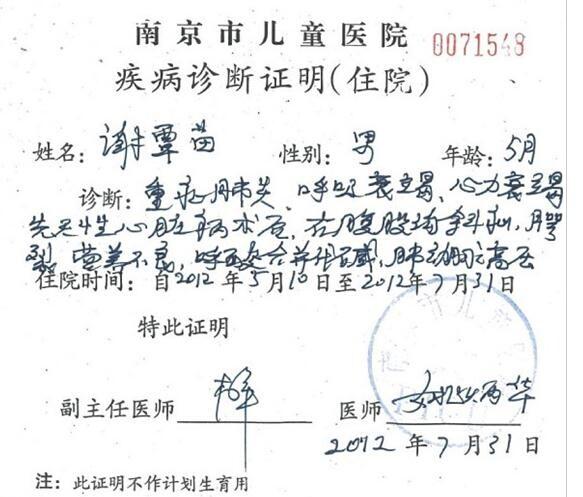 南京市儿童医院
0071548
疾病诊断证明(住院)
姓名: 谢覃苗 性别: 男 年龄: 5月
诊断: 重症肺炎、呼吸衰竭、心力衰竭
先天性心脏病术后、右腹股沟斜疝、腭
裂、营养不良、呼酸合并代碱、肺动脉高压
住院时间: 自2012年5月10日至2012年7月31日
特此证明
副主任医师 医师
2012年7月31日
注: 此证明不作计划生育用